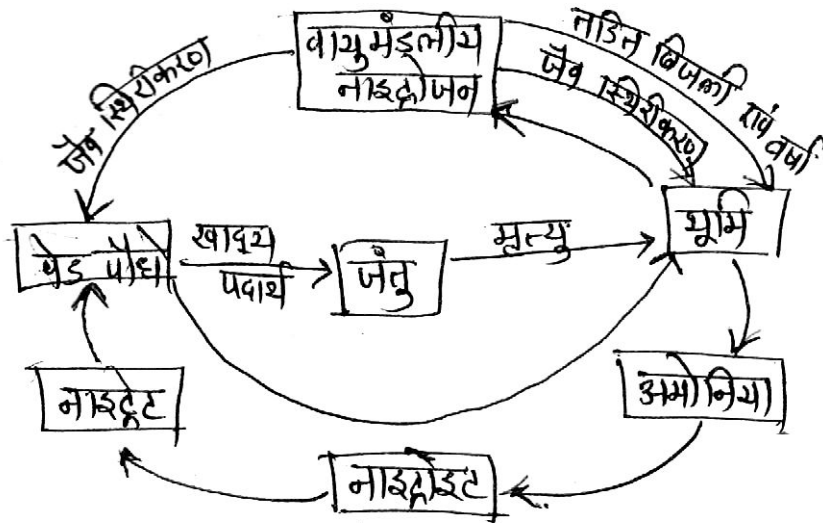 वायुमंडलीय
नाइट्रोजन
तडित बिजली एवं वर्षा
जैव स्थिरीकरण
जैव स्थिरीकरण
पेड पौधे
खाद्य
पदार्थ
जंतु
मृत्यु
भूमि
नाइट्रेट
अमोनिया
नाइट्रोइट